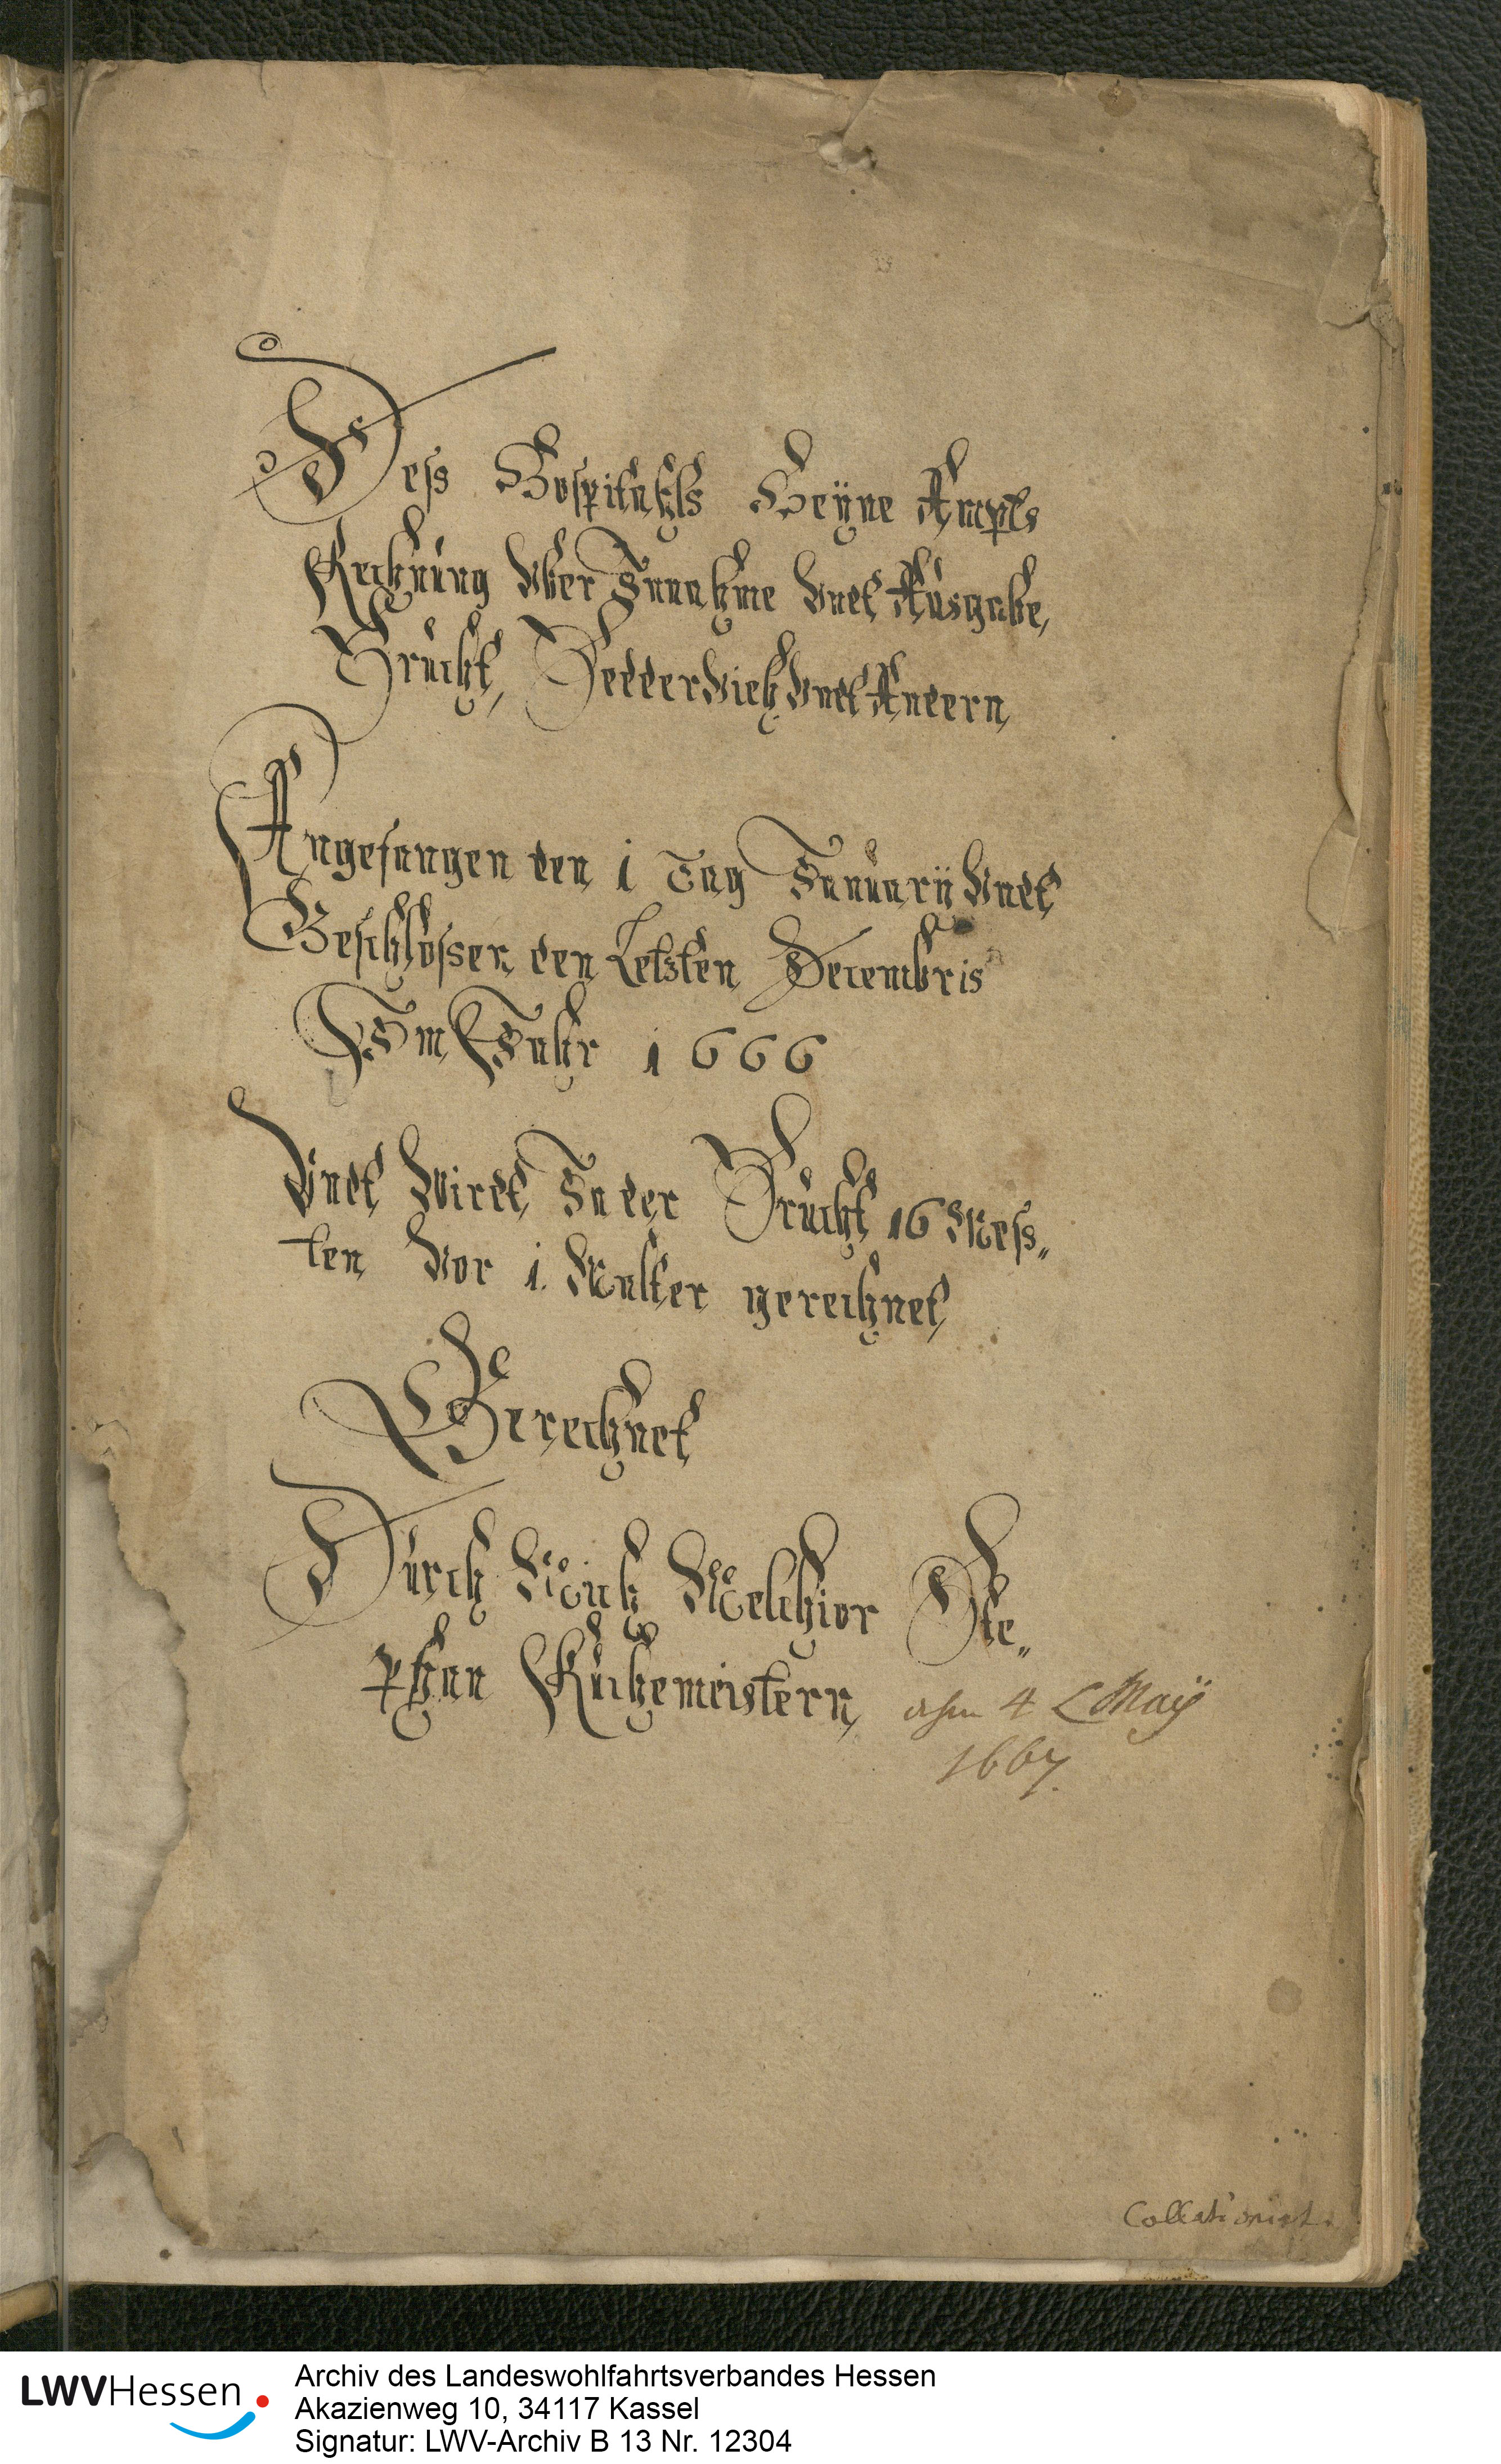 Dess Hospitahls Heÿne Ampts
Rechnŭng Vber Innahme Vndt Aŭsgabe,
Frŭcht, Fedderviehe Vndt Andern,
Angefangen den 1 Tag Janŭarÿ Vndt
Beschlossen den Letzten Decembris
Im Jahr 1666
Vndt Wirdt In der Frŭcht 16 Mess„
ten Vor 1. Malter gerechnet,
Berechnet
Dŭrch Mich Melchior Ste„
phan Kŭchemeistern, 4 Maÿ
1667.
Collationirt.
LWVHessen
Archiv des Landeswohlfahrtsverbandes Hessen
Akazienweg 10, 34117 Kassel
Signatur: LWV-Archiv B 13 Nr. 12304